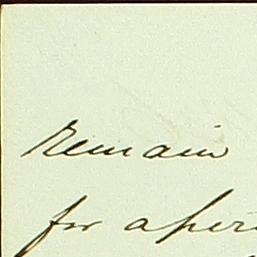 remain
for a peri